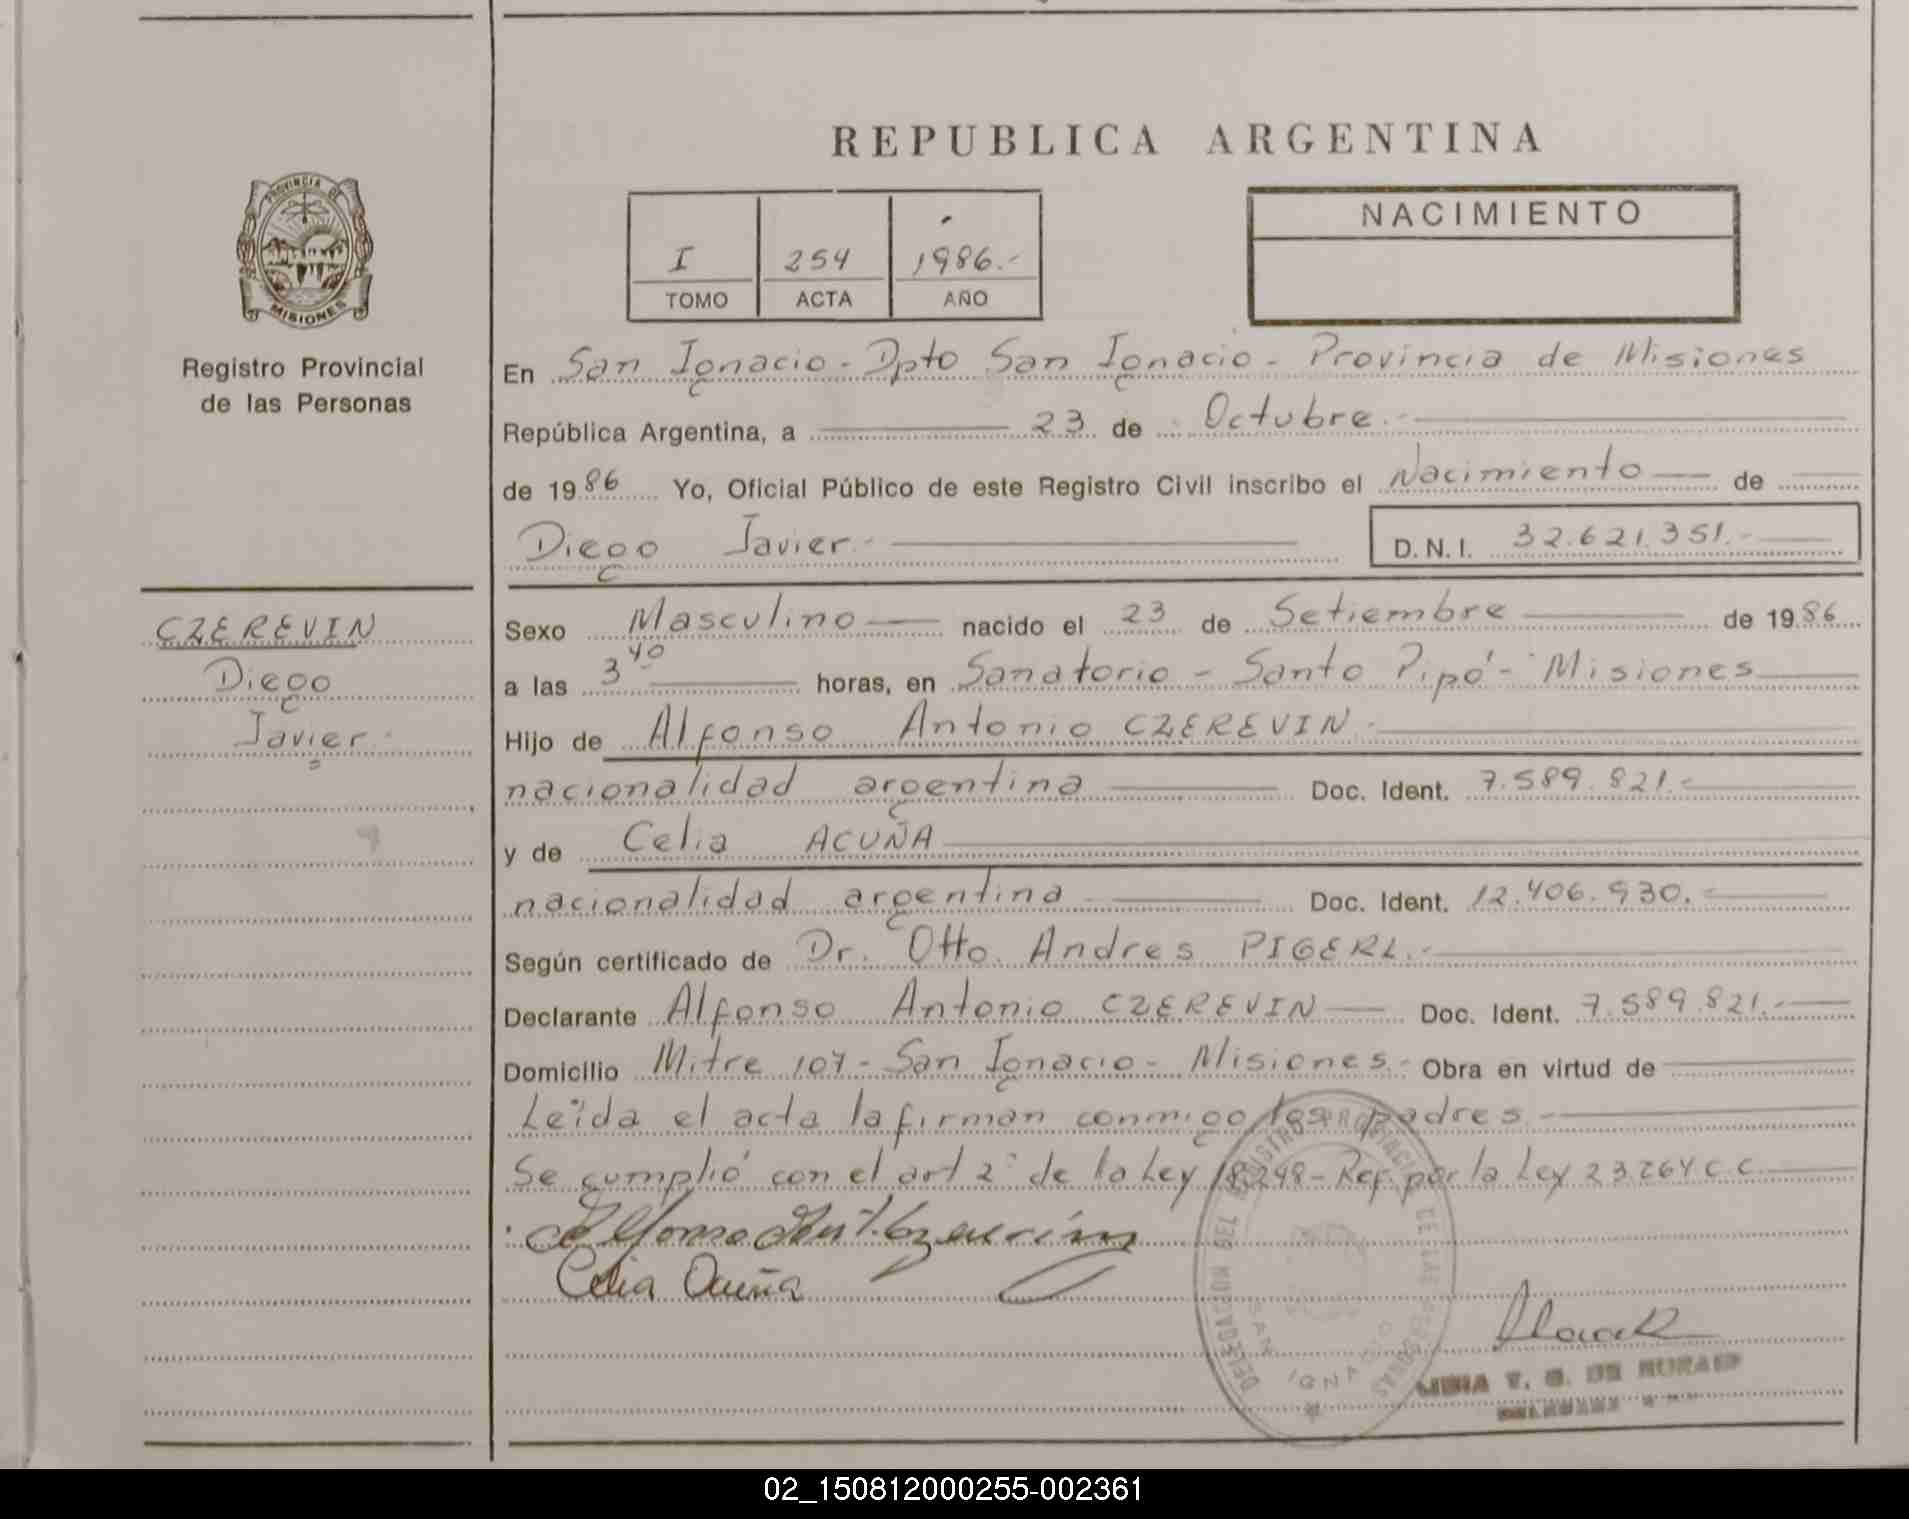 REPUBLICA ARGENTINA
PROVINCIA DE
MISIONES
Registro Provincial
de las Personas
I 254 1986.-
TOMO ACTA AÑO
NACIMIENTO
En San Ignacio - Dpto San Ignacio - Provincia de Misiones
República Argentina, a 23 de Octubre.-
de 1986 Yo, Oficial Público de este Registro Civil inscribo el Nacimiento de
Diego Javier.- D.N.I. 32.621.351.-
CZEREVIN
Diego
Javier.-
Sexo Masculino nacido el 23 de Setiembre de 1986
a las 3 40 horas, en Sanatorio - Santo Pipó - Misiones
Hijo de Alfonso Antonio CZEREVIN.-
nacionalidad argentina Doc. Ident. 7.589.821.-
y de Celia ACUÑA
nacionalidad argentina Doc. Ident. 12.406.930.-
Según certificado de Dr. Otto Andres PIGERL.-
Declarante Alfonso Antonio CZEREVIN Doc. Ident. 7.589.821.-
Domicilio Mitre 107 - San Ignacio - Misiones.- Obra en virtud de
Leída el acta la firman conmigo los padres
Se cumplió con el art 2° de la Ley 18.248 - Ref. por la Ley 23.264 C.C.
Celia Acuña
DELEGACION DEL REGISTRO PROVINCIAL DE LAS PERSONAS
SAN IGNACIO
02_150812000255-002361